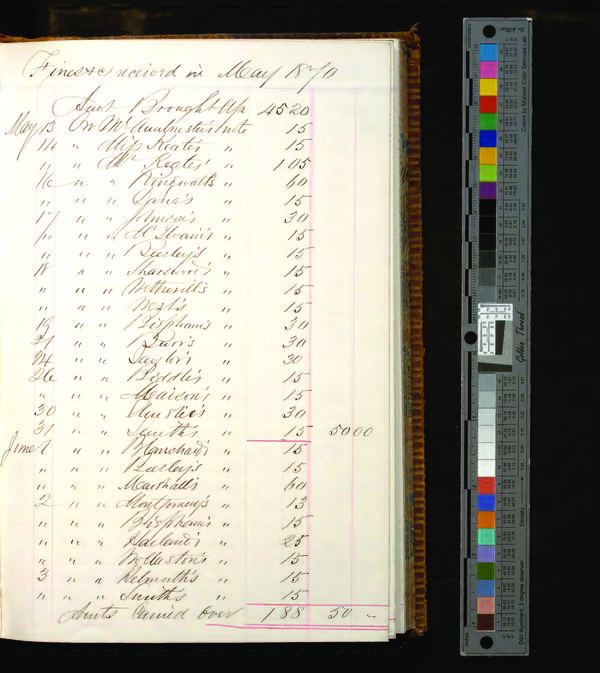 Fines &c received in May 1870
Amt Brought Up 4520
May 13 On Mr note 15
14 " Miss Keates " 15
" " Mr Keates' " 105
16 " " Ringwalt's " 60
" " " Lana's " 15
17 " " Johnson's " 30
" " " McIlvain's " 15
" " " Beesley's " 15
18 " " Sharswood's " 15
" " " Wetherill's " 15
" " " West's " 15
19 " " Bispham's " 30
21 " " Burr's " 30
24 " " Taylor's " 30
26 " " Biddle's " 15
" " " Maison's " 15
30 " " Austie's " 30
31 " " Smith's " 15 5000
June 1 " " Blanchard's " 15
" " " Beesley's " 15
" " " Marshall's " 60
2 " " Montgomery's " 13
" " " Bispham's " 15
" " " Haviland's " 25
" " " Wollaston's " 15
3 " " Helmuth's " 15
" " " Smith's " 15
Amts Carried Over 188 50 "
Golden Thread